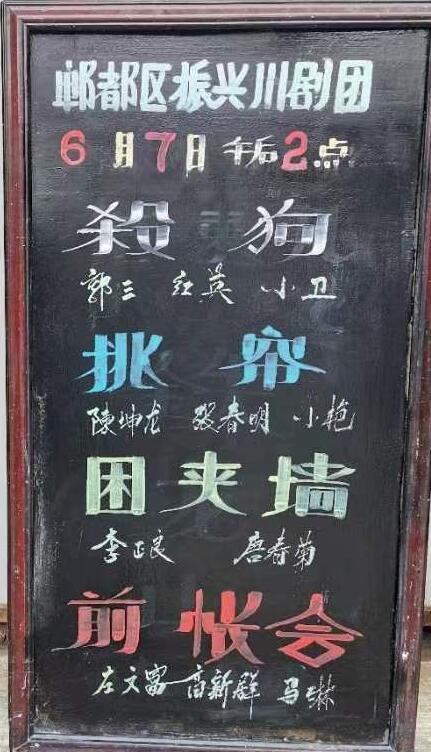 郫都区振兴川剧团
6月7日午后2点
殺狗
郭三 红英 小卫
挑帘
陳坤龙 张春明 小艳
困夹墙
李正良 唐春菊
前帐会
左文富 高新群 马琳